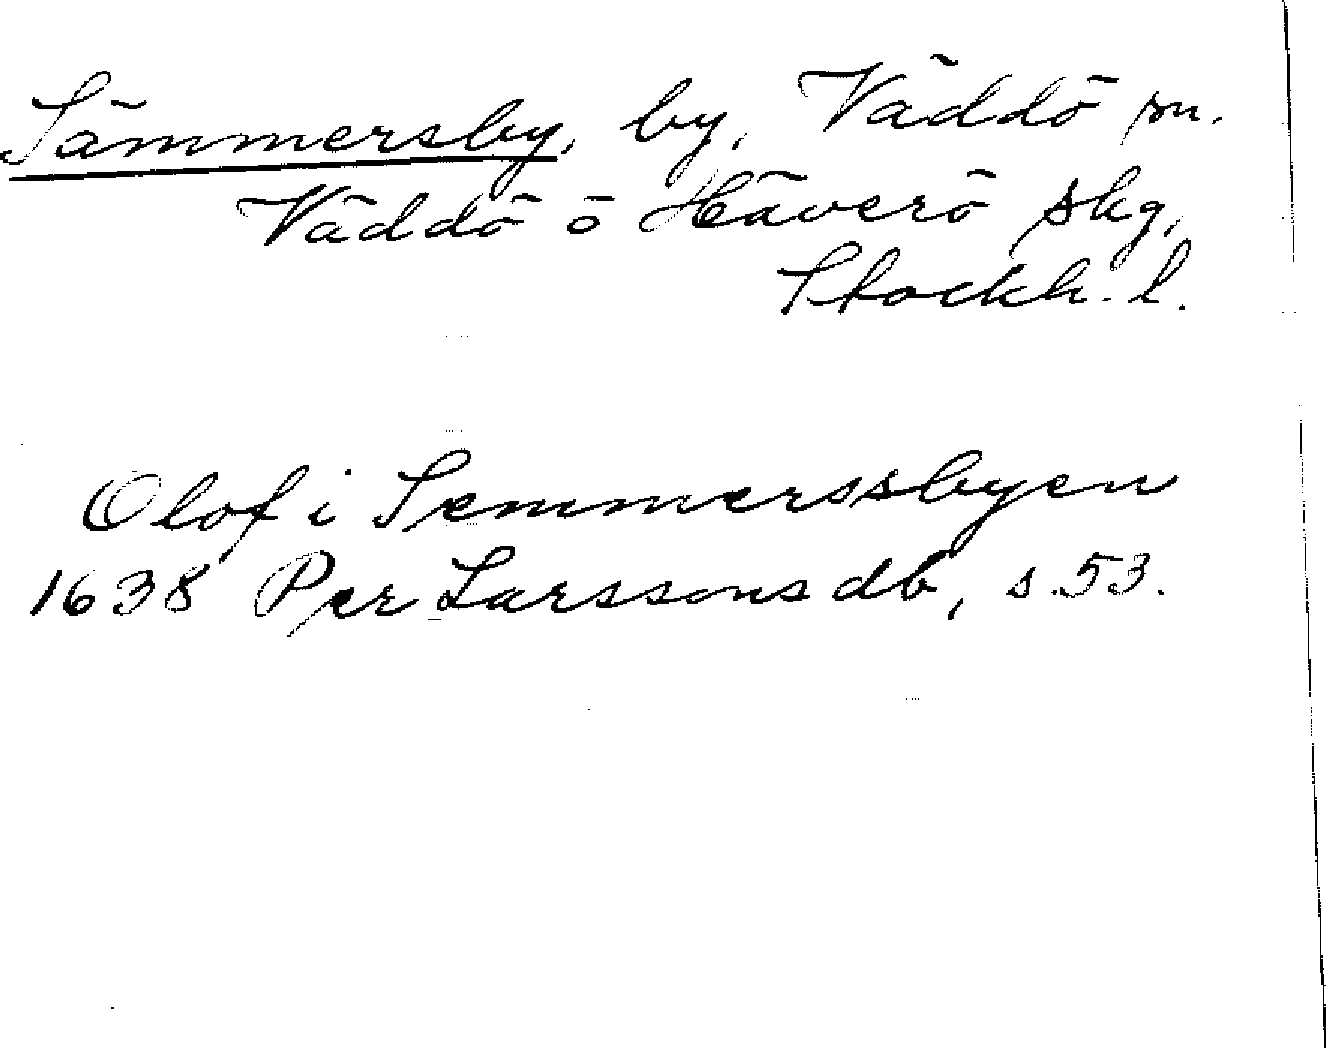 Sämmersby, by, Väddö sn.
Väddö o Häverö skg,
Stockh. l.
Olof i Semmerssbyen
1638 Per Larssons db, s. 53.